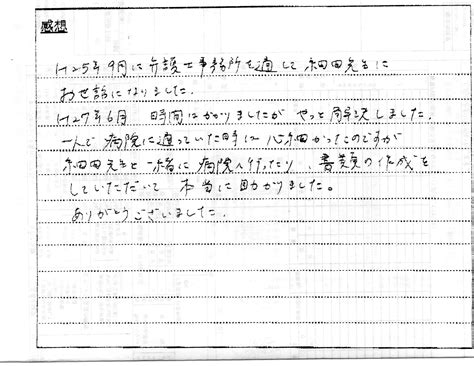 感想
H25年9月に弁護士事務所を通して細田先生に
お世話になりました.
H27年6月 時間はかかりましたが やっと解決しました.
一人で病院に通っていた時は心細かったのですが
細田先生と一緒に病院へ行ったり、書類の作成を
していただいて 本当に助かりました。
ありがとうございました.